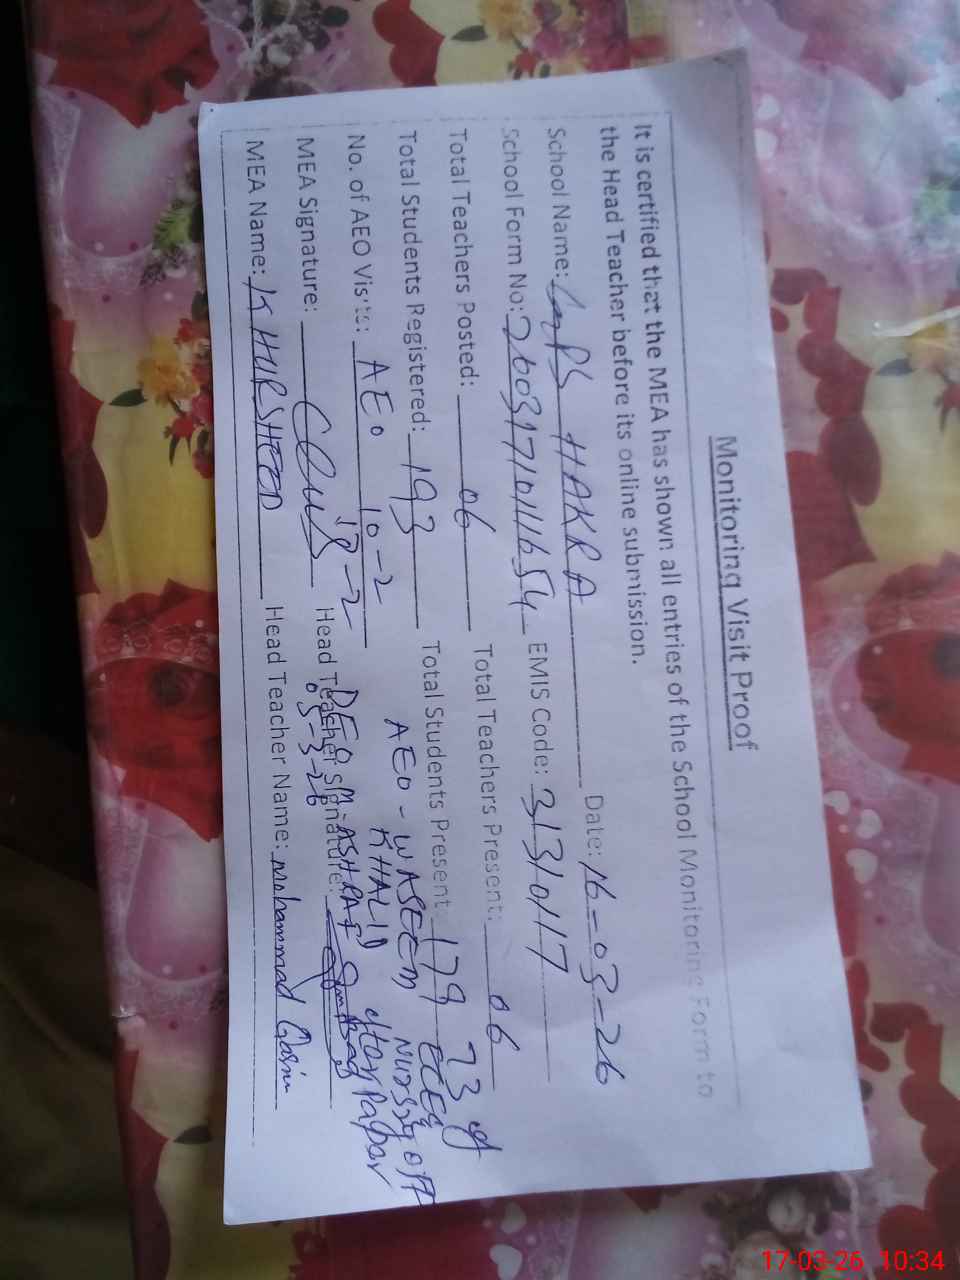 Monitoring Visit Proof
It is certified that the MEA has shown all entries of the School Monitoring Form to
the Head Teacher before its online submission.
School Name: GGPS HAKRA Date: 16-03-26
School Form No: 26031710111654 EMIS Code: 31310117
Total Teachers Posted: 06 Total Teachers Present: 06
Total Students Registered: 193 Total Students Present 179 23 of
ECE
Nursery off
after Papar
No. of AEO Visits: AEO 10-2 AEO - WASEEM
18-2 KHALID
DEO M-ASHRAF
03-3-26
MEA Signature: Head Teacher Signature:
MEA Name: KHURSHEED Head Teacher Name: Mohammad Qasim
17-03-26 10:34